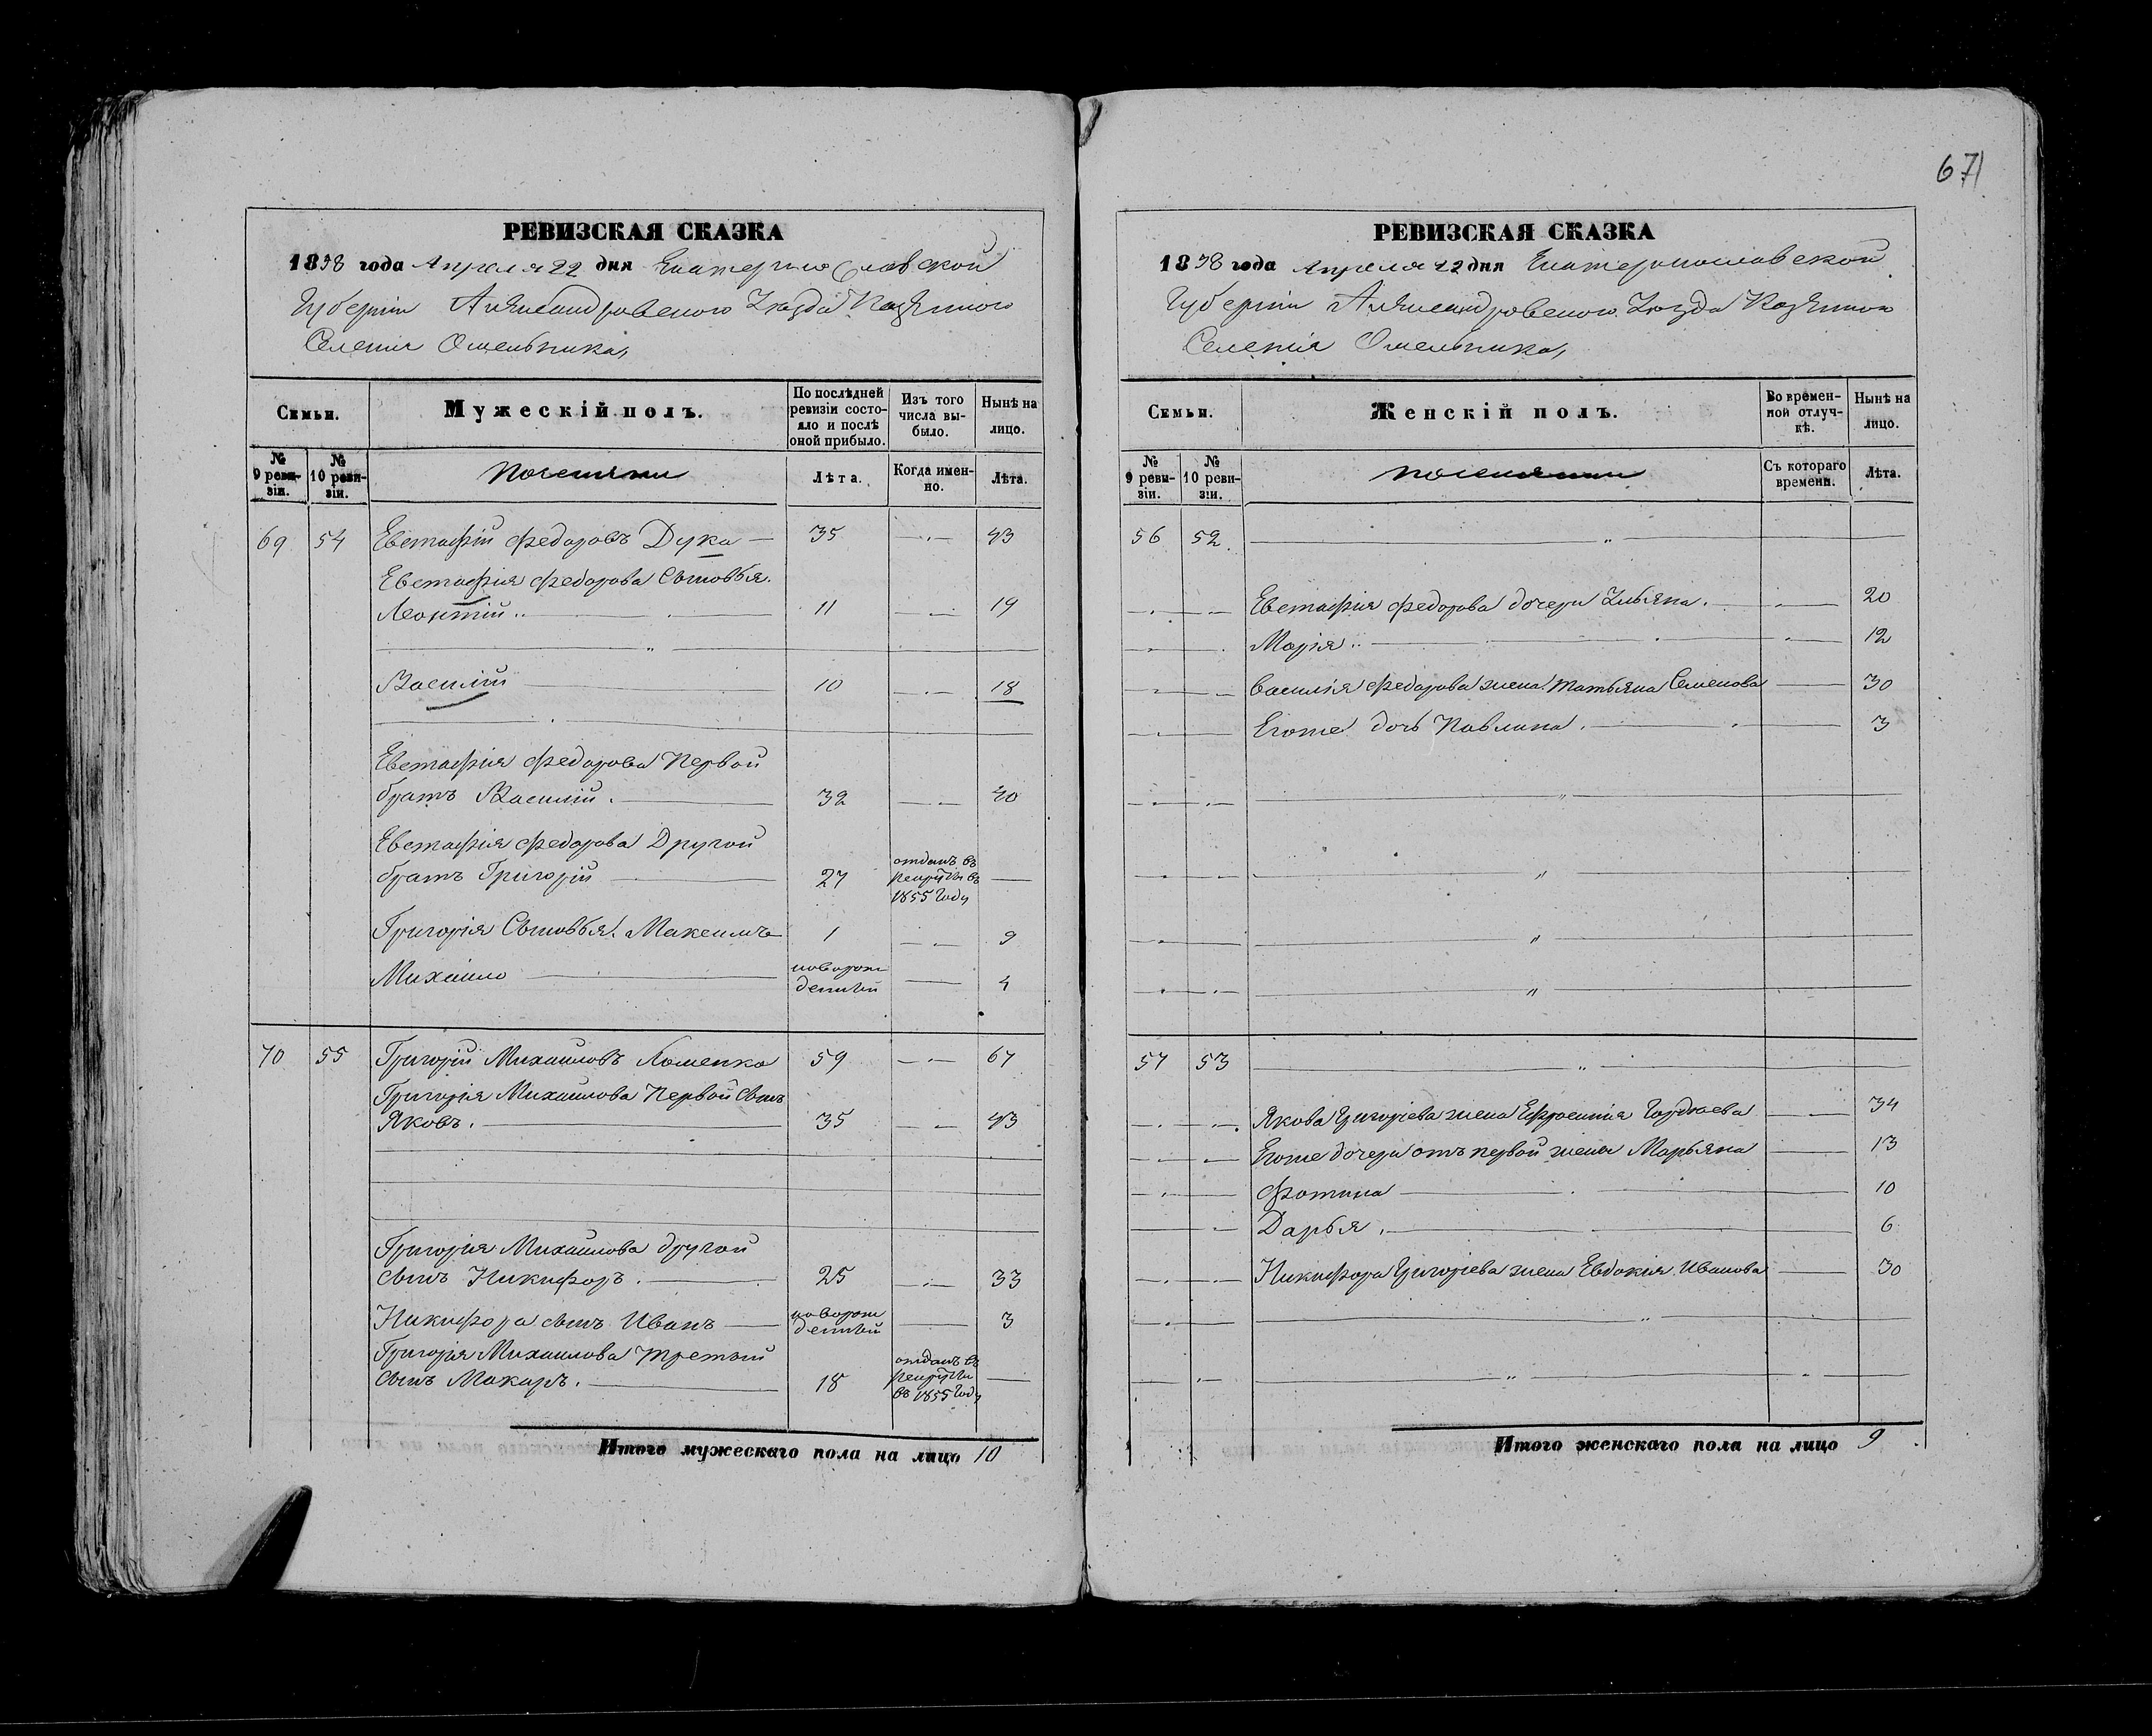 671
РЕВИЗСКАЯ СКАЗКА
1858 года Апреля 22 дня Екатеринославской
Губернiи Александровскаго Уезда Казеннаго
Селенiя Омельника,
Семьи.
Мужескiй полъ.
По послѣдней ревизiи состояло и послѣ оной прибыло.
Изъ того числа выбыло.
Нынѣ на лицо.
№ 9 ревизiи.
№ 10 ревизiи.
Поселяни
Лѣта.
Когда именно.
Лѣта.
69 54 Евстафiй Федоровъ Дука — 35 — 43
Евстафiя Федорова Сыновья.
Леонтiй 11 — 19
Василiй 10 — 18
Евстафiя Федорова Первой
братъ Василiй. 32 — 40
Евстафiя Федорова Другой
братъ Григорiй 27 отданъ въ рекруты въ 1855 году —
Григорiя Сыновья. Максимъ 1 — 9
Михайло новорожденный — 4
70 55 Григорiй Михайловъ Хоменко 59 — 67
Григорiя Михайлова Первой сынъ
Яковъ. 35 — 43
Григорiя Михайлова другой
сынъ Никифоръ. 25 — 33
Никифора сынъ Иванъ новорожденный — 3
Григорiя Михайлова третий
сынъ Макаръ. 18 отданъ въ рекруты въ 1855 году —
Итого мужескаго пола на лицо 10
РЕВИЗСКАЯ СКАЗКА
1858 года Апреля 22 дня Екатеринославской
Губернiи Александровскаго Уезда Казеннаго
Селенiя Омельника,
Семьи.
Женскiй полъ.
Во временной отлучкѣ.
Нынѣ на лицо.
№ 9 ревизiи.
№ 10 ревизiи.
поселянки
Съ котораго времени.
Лѣта.
56 52
Евстафiя Федорова дочери Ульяна. — 20
Марiя — 12
Василiя Федорова жена Татьяна Семенова — 30
Егоже дочь Павлина. — 3
57 53
Якова Григорiева жена Ефросинiя Гордеева — 34
Егоже дочери отъ первой жены Марьяна — 13
Фотина — 10
Дарья. — 6
Никифора Григорiева жена Евдокiя Иванова — 30
Итого женскаго пола на лицо 9